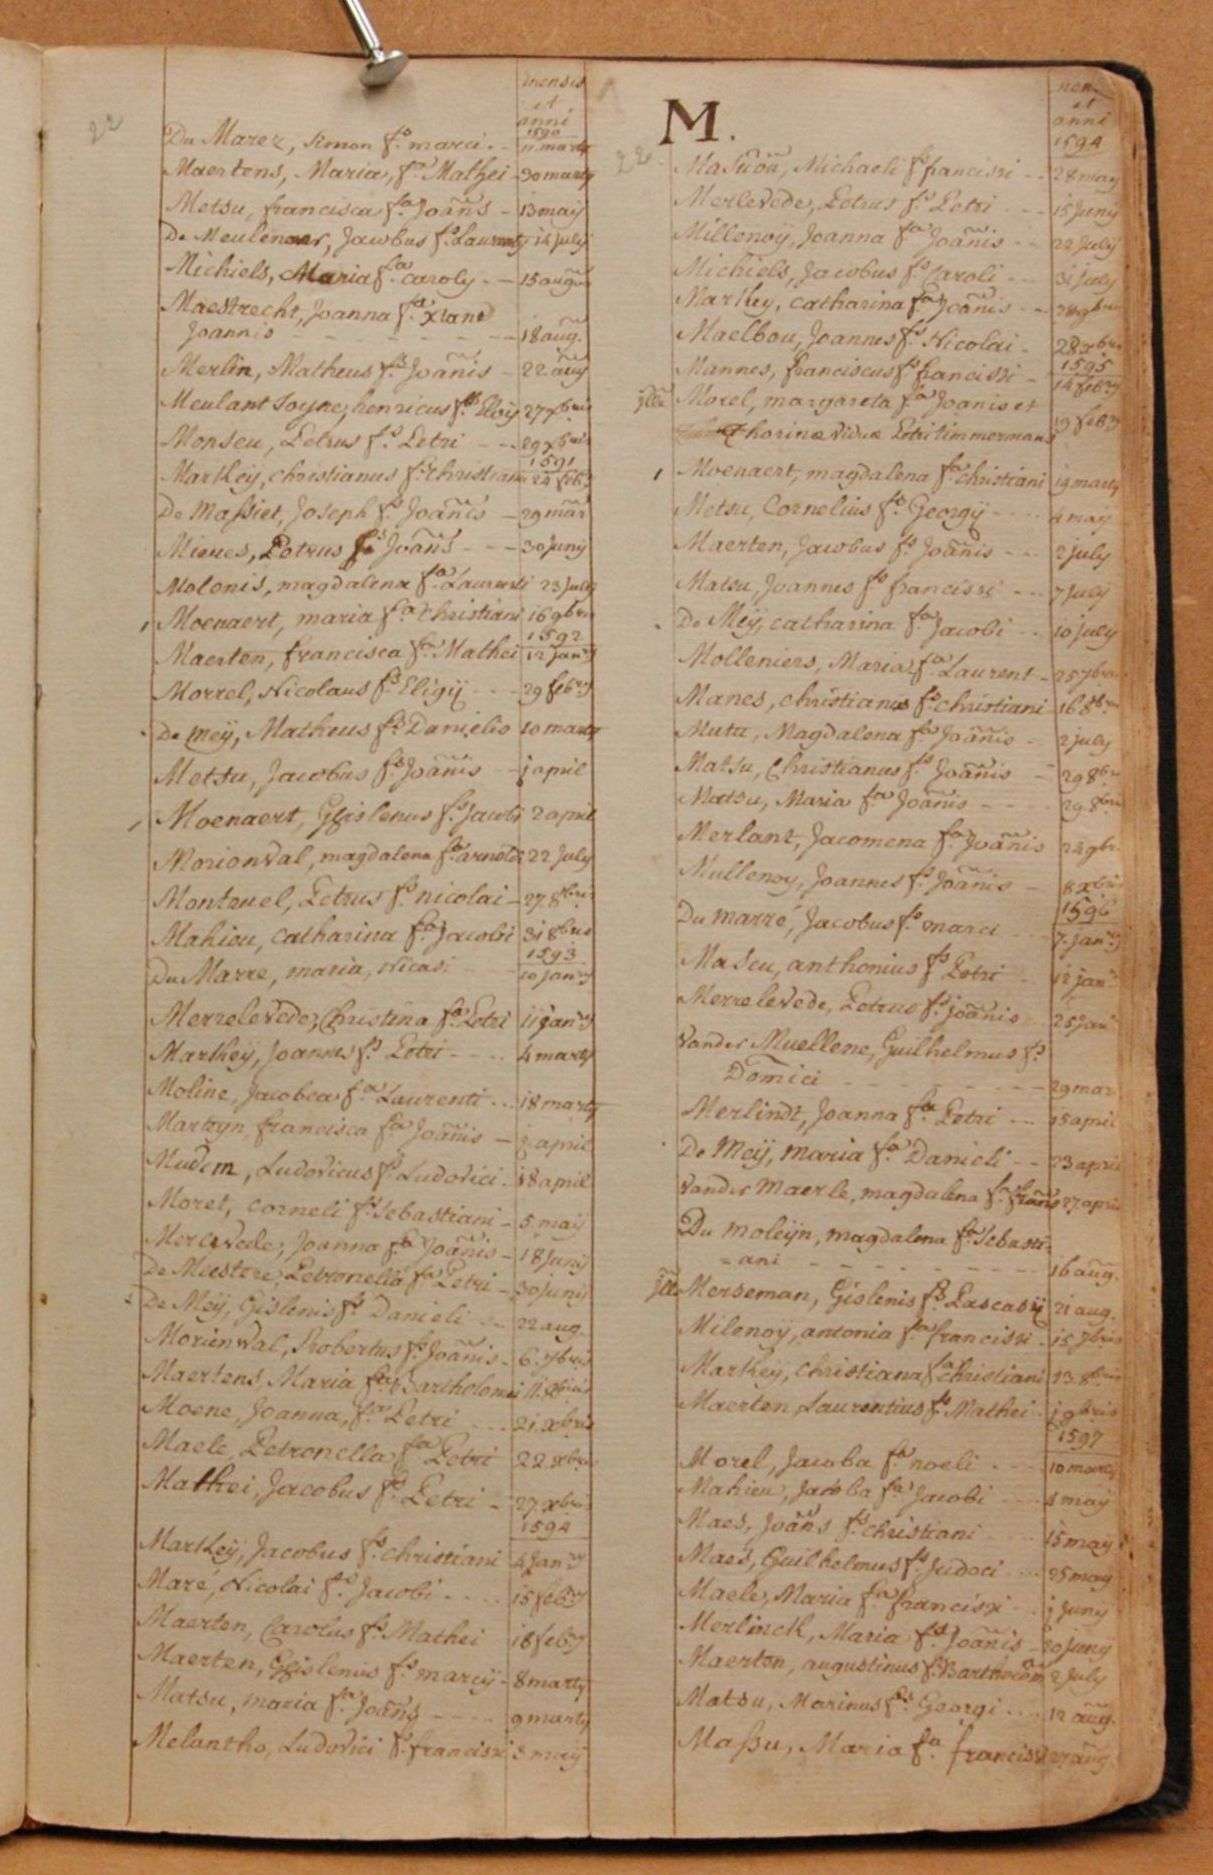 22
mensis
et
anni
1590
Du Marez, simon fs. marci. - 11 marty
Maertens, Maria, fa Mathei - 30 marty
Metsu, francisca fa. Joan̄s - 13 maÿ
De Meulenaer, Jacobus fs. Laurenty 12 july
Michiels, Maria fa caroly - - 15 aug
Maestrecht, Joanna fa. xtane
Joannis - - - - - - - - 18 aug.
Merlin, Matheus fs Joānis - 22 aug
Meulant Joyne, henricus fs Eloÿ 27 xbris
Monseu, Petrus fs Petri - - 29 xbris
1591
Markeÿ, christianus fs christiani 24 feb.
De Maſsiet, Joseph fs Joānis - 29 mar
Mieues, Petrus fs Joan̄s - - - 30 junÿ
Molonis, magdalena fa. Laurenti 23 july
Moenaert, maria fa christiani 16 9bris
1592
Maerten, francisca fa. Mathei 12 janry
Morrel, Nicolaus fs Eligÿ - - - 29 febry
De meÿ, Matheus fs Danielis 10 marty
Metsu, Jacobus fs Joānis - - j april
Moenaert, Gislenus fs Jacobi 2 april
Morionval, magdalena fa arnoldi 22 July
Monteuel, Petrus fs nicolai - 27 8bris
Mahieu, catharina fa Jacobi 31 8bris
1593
Du Marre, maria, Nicasi - - 10 janry
Merrelevede, Christina fa. Petri 11 janry
Markeÿ, Joannes fs. Petri - - - - 4 marty
Moline, Jacobea fa. Laurenti - - - 18 marty
Martyn, francisca fa Joānis - 2 april
Mudem, Ludovicus fs Ludovici - 18 april
Moret, corneli fs Sebastiani - 5 maÿ
Merlevede, Joanna fa Joānis - 18 Juny
De Muestre, Petronella fa Petri - 30 junÿ
De Meÿ, Gislenis fs Danieli - - 22 aug.
Morienval, Robertus fs Joānis - 6. 7bris
Maertens Maria fa Bartholomei 11. 8bris
Moene, Joanna, fa Petri - - - 21. xbris
Maele, Petronella fa Petri 22 xbris
Mathei, Jacobus fs Petri - 27 xbris
1594
Markeÿ, Jacobus fs. christiani 4 janry
Maré, Nicolai fs Jacobi - - - - 15 febry
Maerten, Carolus fs. Mathei 18 febry
Maerten, Gislenus fs. marcÿ - 8 marty
Matsu, maria fa Joan̄s - - - - 9 marty
Melantho, Ludovici fs francisci 3 maÿ
22.
M.
men.
et
anni
1594
Maſuou, Michaeli fs francisci - - 28 may
Merlevede, Petrus fs Petri - - 15 Juny
Millenoÿ, Joanna fa Joānis - - 22 July
Michiels, Jacobus fs Caroli - - 31 july
Markey, catharina fa Joānis - - 21 9bris
Maelbou, Joannes fs Nicolai - 28 xbris
1595
Mannes, franciscus fs francisci - 14 febry
jlle Morel, margareta fa Joanis et
Catharinæ viduæ Petri timmermans 19 febry
Moenaert, magdalena fa christiani 19 marty
Metsu, Cornelius fs. Georgÿ - - - - 4 may
Maerten, Jacobus fs Joānis - - - 2 july
Matsu, Joannes fs francisci - - - 7 July
De Meÿ, catharina fa Jacobi - - 10 july
Molleniers, Maria fa Laurent - 25 7bris
Manes, christianus fs christiani - 16 8bris
Mutu, Magdalena fa Joānis - 2 july
Matsu, Christianus fs Joānis - 29 8bris
Matsu, Maria fa Joānis - - 29. 8bris
Merlant, Jacomena fa Joānis 24 9br.
Mullenoy, Joannes fs Joānis - 8 xbris
1596
Du marré, Jacobus fs marci 7. janry
Maseu, anthonius fs Petri - 12 janr
Merrelevede, Petrus fs. joānis 25 janr
Vander Muellene, Guilhelmus fs
Domici - - - - - - - - - 29 mar
Merlindt, Joanna fa Petri - - 15 april
De Meÿ, maria fa Danieli - - 23 april
Vander Maerle, magdalena fa frans 27 april
Du moleÿn, magdalena fa Sebasti=
=ani - - - - - - - - - 16 aug.
jlle Merseman, Gislenis fs Pascasÿ 21 aug.
Milenoÿ, antonia fa francisci - 15 7bris
Markeÿ, christiana fa christiani 13 8bris
Maerten, Laurentius fs Mathei - j 9bris
1597
Morel, Jacoba fa noeli - - - - 10 marty
Mahieu, Jacoba fa Jacobi - - - 4 maÿ
Maes, Joan̄s fs christiani 15 may
Maes, Guilhelmus fs Judoci - - - 25 may
Maele, Maria fa francisci - - j Juny
Merlinck, Maria fa Joānis - 20 junÿ
Maerten, augustinus fs Bartholom̄ 2 July
Matsu, Marinus fs Georgi - - - 12 aug.
Maſsu, Maria fa francisci 27 aug.